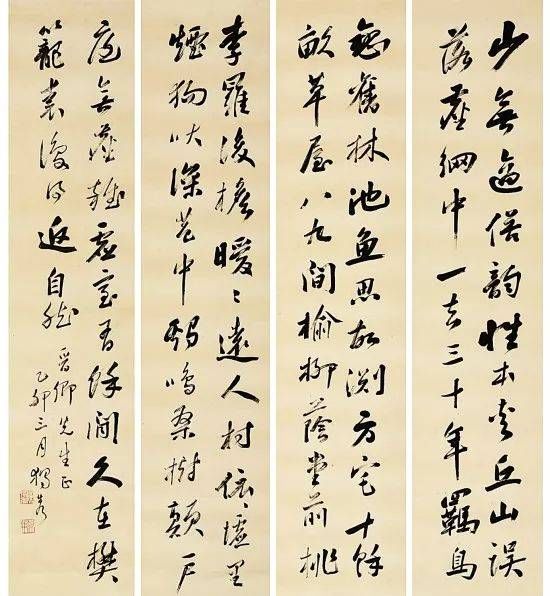 少無適俗韵性本爱丘山误
落塵網中一去三十年羈鳥
戀舊林池魚思故渊方宅十餘
畝草屋八九間榆柳蔭堂前桃
李羅後檐暧〻遠人村依〻墟里
煙狗吠深巷中鷄鳴桑樹顛戶
庭無塵雜虚室有餘閒久在樊
籠裏復得返自然
晋卿先生正
乙卯三月獨秀